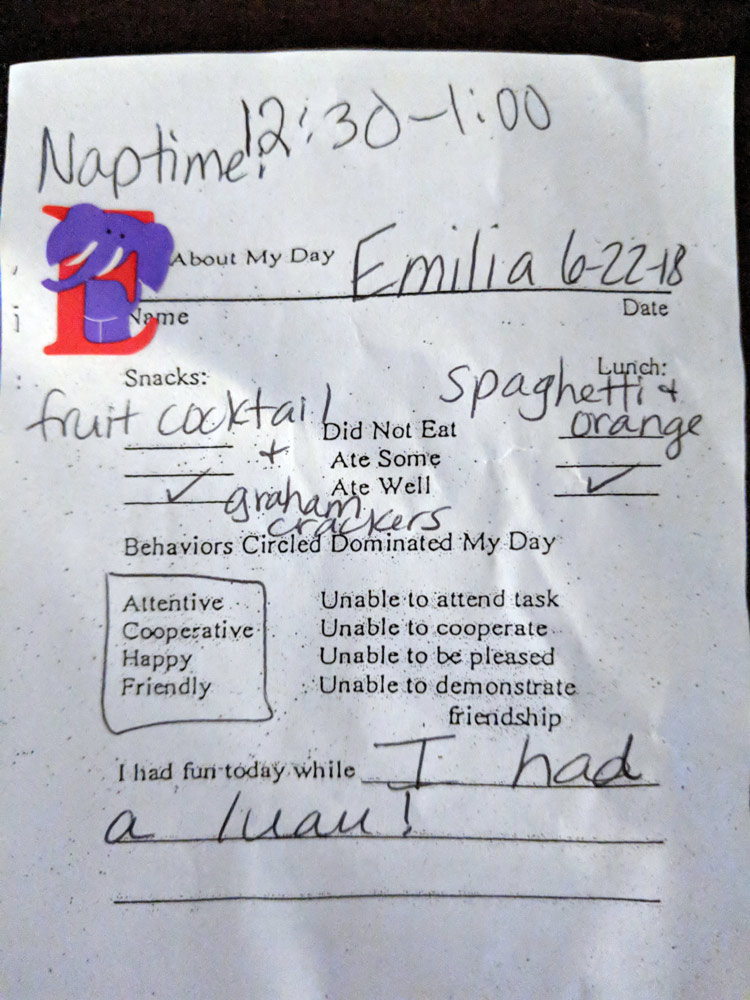 Naptime: 12:30-1:00
E
About My Day Emilia 6-22-18
Name Date
Snacks: Lunch:
fruit cocktail spaghetti +
Did Not Eat orange
+ Ate Some
✓ Ate Well ✓
graham
crackers
Behaviors Circled Dominated My Day
Attentive Unable to attend task
Cooperative Unable to cooperate
Happy Unable to be pleased
Friendly Unable to demonstrate
friendship
I had fun today while I had
a luau!